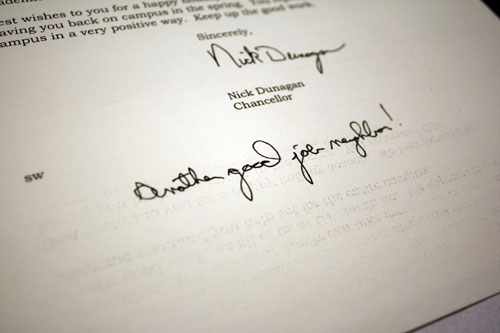 est wishes to you for a happy
aving you back on campus in the spring. You
ampus in a very positive way. Keep up the good work.
Sincerely,
Nick Dunagan
Nick Dunagan
Chancellor
sw
Another good job neighbor!